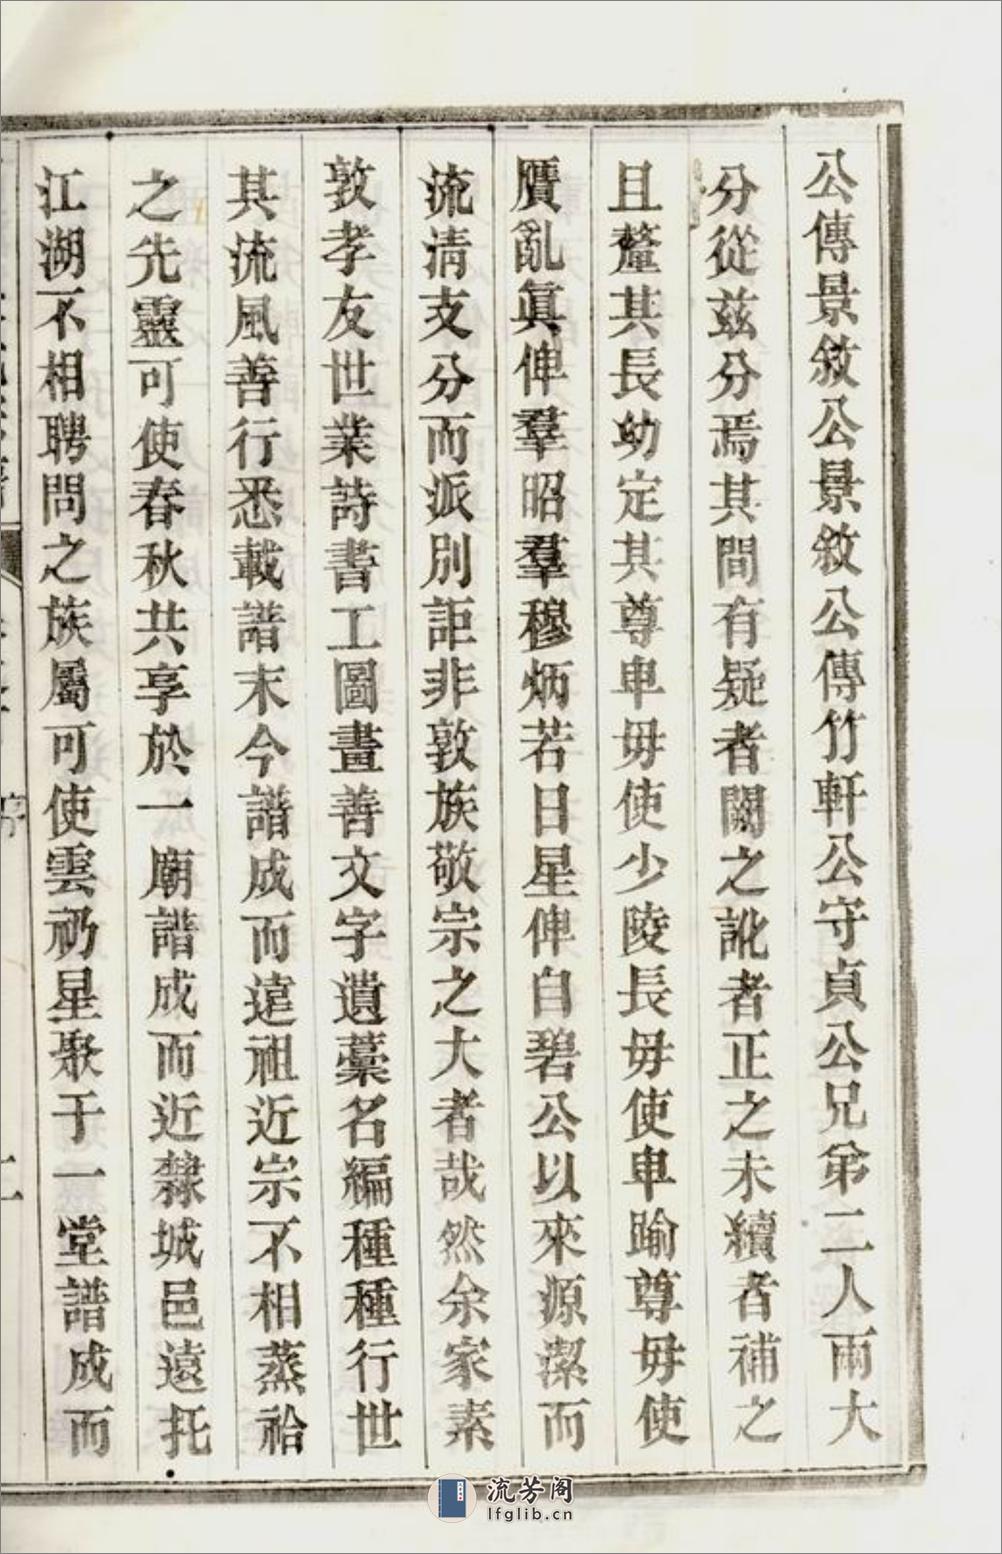 公傳景敘公景敘公傳竹軒公守貞公兄弟二人兩大
分從茲分焉其間有疑者闕之訛者正之未續者補之
且釐其長幼定其尊卑毋使少陵長毋使卑踰尊毋使
贋亂眞俾羣昭羣穆炳若日星俾自碧公以來源潔而
流淸支分而派別詎非敦族敬宗之大者哉然余家素
敦孝友世業詩書工圖畫善文字遺藁名編種種行世
其流風善行悉載譜末今譜成而遠祖近宗不相蒸祫
之先靈可使春秋共享於一廟譜成而近隸城邑遠托
江湖不相聘問之族屬可使雲礽星聚于一堂譜成而
序
流芳阁
lfglib.cn